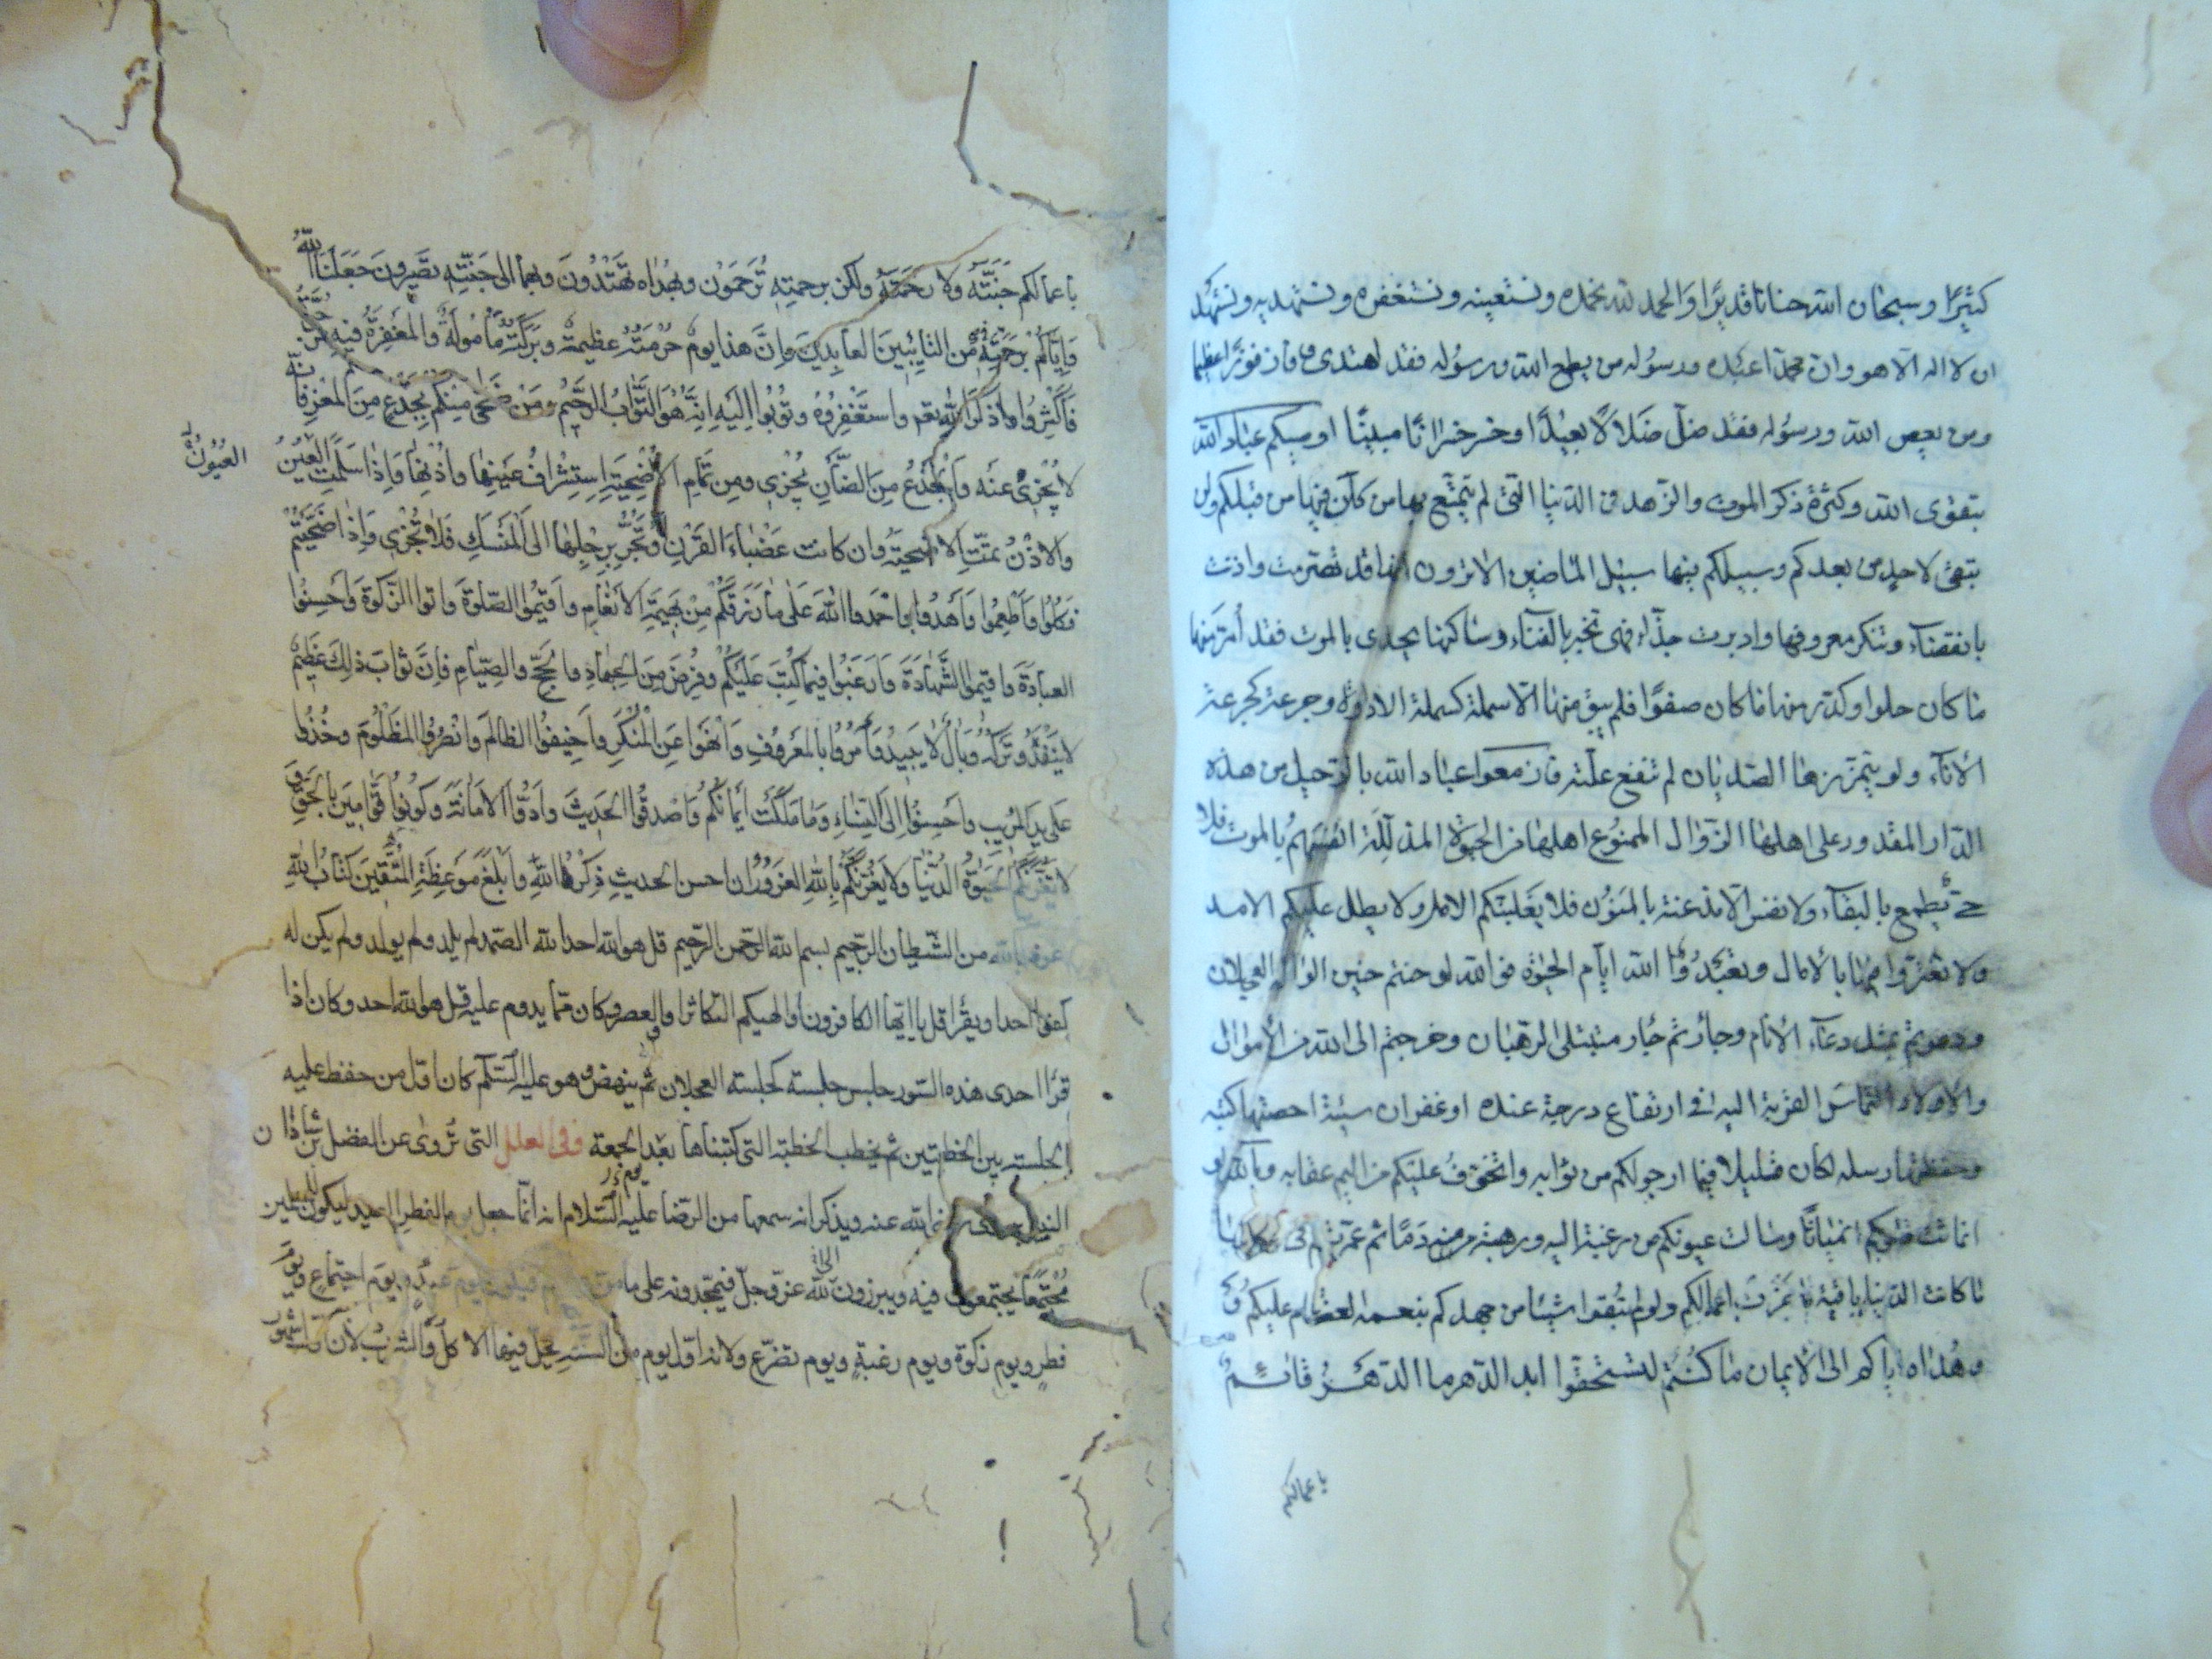 كثيرا وسبحان الله حنانا قديرا والحمد لله نحمده ونستعينه ونستغفره ونستهديه ونشهد
ان لا اله الا هو وان محمدا عبده ورسوله من يطع الله ورسوله فقد اهتدى وفاز فوزا عظيما
ومن يعص الله ورسوله فقد ضل ضلالا بعيدا وخسر خسرانا مبينا اوصيكم عباد الله
بتقوى الله وكثرة ذكر الموت والزهد فى الدنيا التى لم يتمتع بها من كان فيها من قبلكم ولن
تبقى لاحد من بعدكم وسبيلكم فيها سبيل الماضين الا ترون انها قد تصرمت واذنت
بانقضاء وتنكر معروفها وادبرت جذاء فهى تخبر بالفناء وساكنها يحدى بالموت فقد أمر منها
ما كان حلوا وكدر منها ما كان صفوا فلم يبق منها الا سملة كسملة الاداوة وجرعة كجرعة
الأناء ولو يتمززها الصديان لم تنقع غلته فازمعوا عباد الله بالرحيل من هذه
الدار المقدور على اهلها الزوال الممنوع اهلها من الحيوة المذللة انفسهم بالموت فلا
حى يطمع بالبقاء ولا نفس الا مذعنة بالمنون فلا يغلبنكم الامل ولا يطل عليكم الامد
ولا تغتروا فيها بالأمال وتعبدوا الله ايام الحيوة فو الله لو حننتم حنين الواله العجلان
ودعوتم بمثل دعاء الأنام وجأرتم جؤار متبتلى الرهبان وخرجتم الى الله من الأموال
والأولاد التماس القربة اليه فى ارتفاع درجة عنده او غفران سيئة احصتها كتبه
وحفظتها رسله لكان قليلا فيما ارجو لكم من ثوابه واتخوف عليكم من اليم عقابه وبالله لو
انماثت قلوبكم انمياثا وسالت عيونكم من رغبة اليه ورهبة منه دما ثم عمرتم فى
ما كانت الدنيا باقية ما جزت اعمالكم ولو لم تبقوا شيئا من جهدكم بنعمه العظام عليكم و
وهداه اياكم الى الأيمان ما كنتم لتستحقوا ابد الدهر ما الدهر قائم
باعمالكم
باعمالكم جنته ولا رحمته ولكن برحمته ترحمون وبهداه تهتدون وبهما الى جنته تصيرون جعلنا الله
واياكم برحمته من التائبين العابدين وان هذا يوم حرمته عظيمة وبركته مأمولة والمغفرة فيه مرجوة
فاكثروا ذكر الله تعالى واستغفروه وتوبوا اليه انه هو التواب الرحيم ومن ضحى منكم بجذع من المعز فانه
لا يجزى عنه والجذع من الضأن يجزى ومن تمام الأضحية استشراف عينها واذنها واذا سلمت العين
العيون
والاذن تمت الاضحية وان كانت عضباء القرن او تجر برجلها الى المنسك فلا تجزى واذا ضحيتم
فكلوا واطعموا واهدوا واحمدوا الله على ما رزقكم من بهيمة الانعام واقيموا الصلوة واتوا الزكوة واحسنوا
العبادة واقيموا الشهادة وارغبوا فيما كتب عليكم وفرض من الجهاد والحج والصيام فان ثواب ذلك عظيم
لا ينفد وتركه وبال لا يبيد وأمروا بالمعروف وانهوا عن المنكر واخيفوا الظالم وانصروا المظلوم وخذوا
على يد المريب واحسنوا الى النساء وما ملكت أيمانكم واصدقوا الحديث وادوا الامانة وكونوا قوامين بالحق و
لا تغرنكم الحيوة الدنيا ولا يغرنكم بالله الغرور ان احسن الحديث ذكر الله وابلغ موعظة المتقين كتاب الله
اعوذ بالله من الشيطان الرجيم بسم الله الرحمن الرحيم قل هو الله احد الله الصمد لم يلد ولم يولد ولم يكن له
كفوا احد ويقرأ قل يا ايها الكافرون أو الهيكم التكاثر او والعصر وكان مما يدوم عليه قل هو الله احد وكان اذا
قرأ احدى هذه السور جلس جلسة كجلسة العجلان ثم ينهض وهو عليه السلم كان اول من حفظ عليه
الجلسة بين الخطبتين ثم يخطب الخطبة التى كتبناها بعد الجمعة وفى العلل التى تروى عن الفضل بن شاذان
النيسابورى رضى الله عنه ويذكر انه سمعها من الرضا عليه السلام انه انما جعل يوم الفطر العيد ليكون للمسلمين
مجتمعا يجتمعون فيه ويبرزون الى الله عز وجل فيمجدونه على ما من عليهم فيكون يوم عيد ويوم اجتماع ويوم
فطر ويوم زكوة ويوم رغبة ويوم تضرع ولانه اول يوم من السنة يحل فيها الاكل والشرب لأن اول شهور